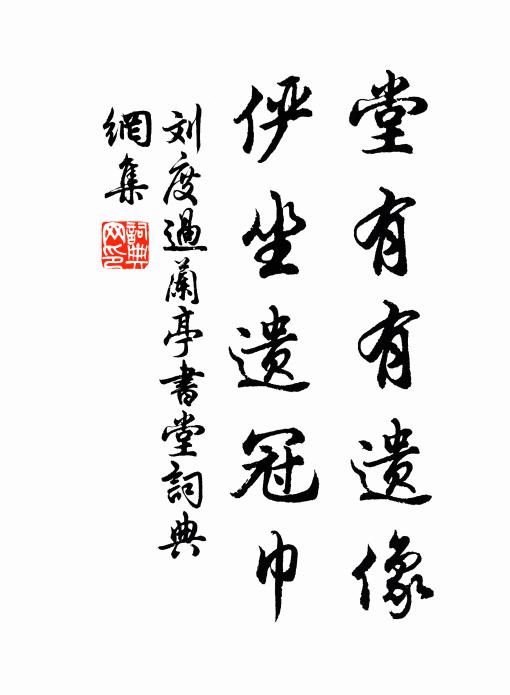 堂有有遗像
俨坐遗冠巾
刘度過蘭亭書堂詞典
網集
詞典
网印